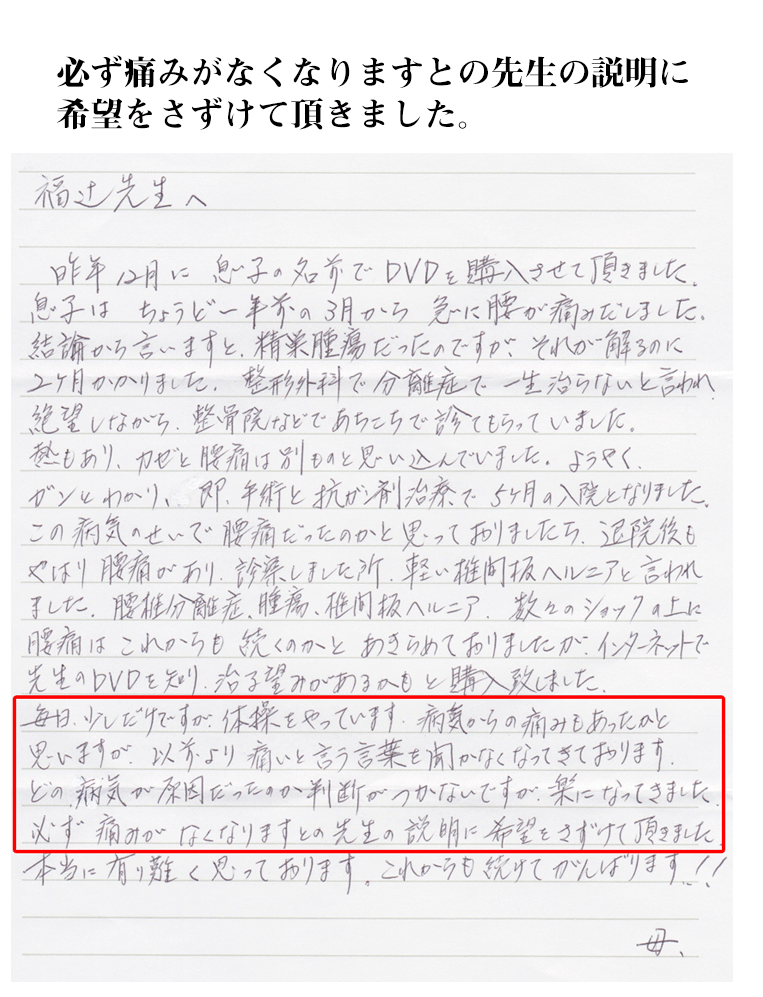 必ず痛みがなくなりますとの先生の説明に
希望をさずけて頂きました。
福辻先生へ
昨年12月に 息子の名前でDVDを購入させて頂きました。
息子は ちょうど一年前の3月から 急に腰が痛みだしました。
結論から言いますと、精巣腫瘍だったのですが、それが解るのに
2ヶ月かかりました。整形外科で分離症で一生治らないと言われ
絶望しながら、整骨院などであちこちで診てもらっていました。
熱もあり、カゼと腰痛は別ものと思い込んでいました。ようやく、
ガンとわかり、即、手術と抗ガン剤治療で5ヶ月の入院となりました。
この病気のせいで腰痛だったのかと思っておりましたら、退院後も
やはり腰痛があり、診察しました所、軽い椎間板ヘルニアと言われ
ました。腰椎分離症、腫瘍、椎間板ヘルニア、数々のショックの上に
腰痛は これからも 続くのかと あきらめておりましたが、インターネットで
先生のDVDを知り、治る望みがあるかもと購入致しました。
毎日、少しだけですが、体操をやっています。病気からの痛みもあったかと
思いますが、以前より 痛いと言う言葉を聞かなくなってきております。
どの病気が原因だったのか判断がつかないですが、楽になってきました。
必ず 痛みが なくなりますとの先生の説明に希望をさずけて頂きました。
本当に有り難く思っております。これからも続けてがんばります!!
母、